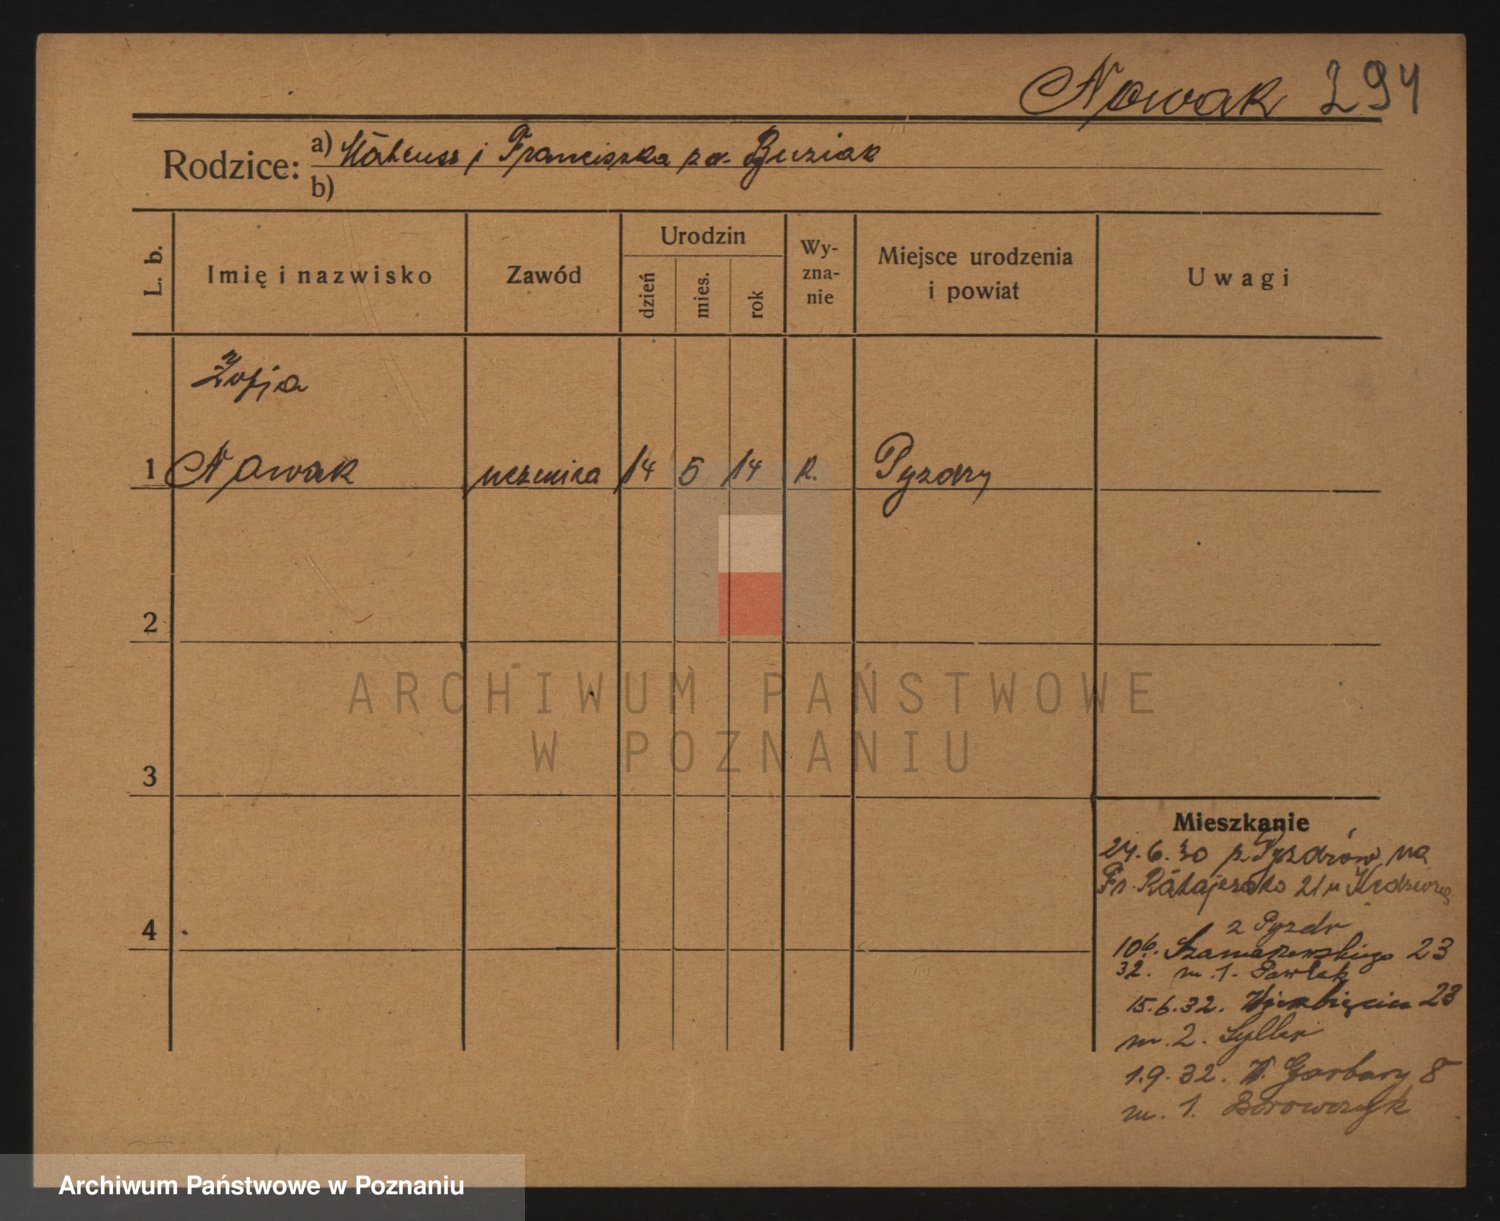 Nowak 294
Rodzice: a) Mateusz i Franciszka z d. Buziak
b)
L. b.
Imię i nazwisko
Zawód
Urodzin
dzień
mies.
rok
Wy-
zna-
nie
Miejsce urodzenia
i powiat
Uwagi
Zofja
1 Nowak uczenica 14 5 14 k. Pyzdry
2
ARCHIWUM PAŃSTWOWE
W POZNANIU
3
Mieszkanie
24.6.30 z Pyzdrów na
Fr. Ratajczaka 21 m
4
z Pyzdr
10.6. Szamarzewskiego 23
32. m. 1. Pawlak
15.6.32. Wierzbięcice 23
m. 2. Syller
1.9.32. W. Garbary 8
m. 1. Borowczyk
Archiwum Państwowe w Poznaniu